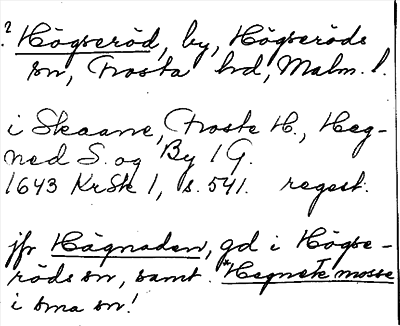 ? Högseröd, by, Högseröds
sn, Frosta hd, Malm. l.
i Skaane, Froste H., Heg-
ned S. og By 1 G.
1643 KrSk 1, s. 541. regest.
jfr Högnaden, gd i Högse-
röds sn, samt *Hegnetmosse
i sma sn!